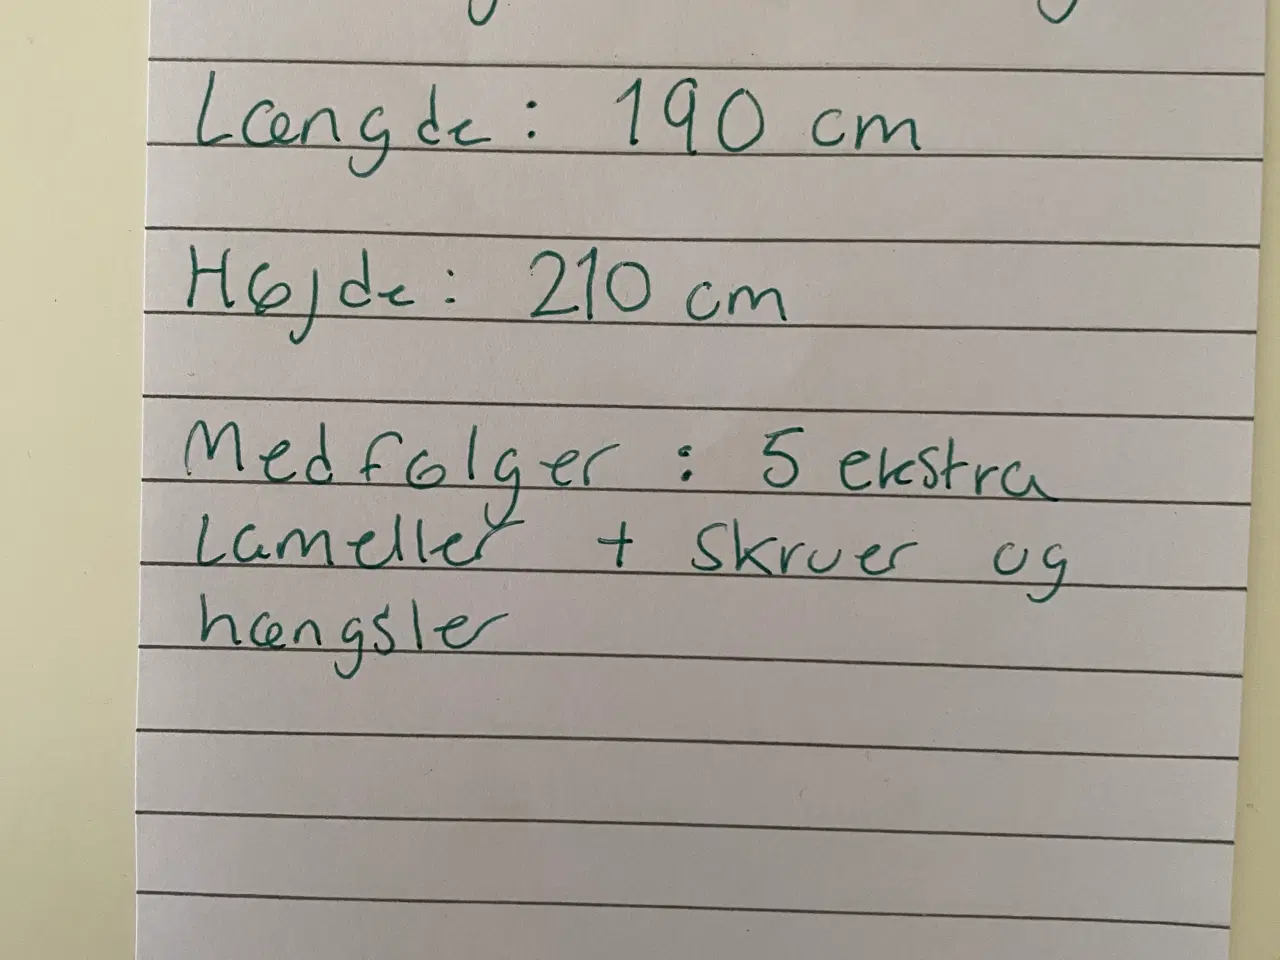 Længde: 190 cm
Højde: 210 cm
Medfølger: 5 ekstra
Lameller + skruer og
hængsler